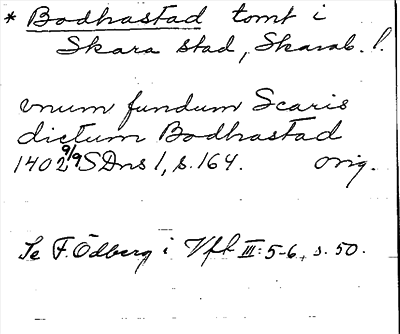 * Bodhastad tomt i
Skara stad, Skarab. l.
vnum fundum Scaris
dictum Bodhastad
1402 9/9 SDns 1, s. 164. orig.
Se F. Ödberg i Vft III: 5-6, s. 50.